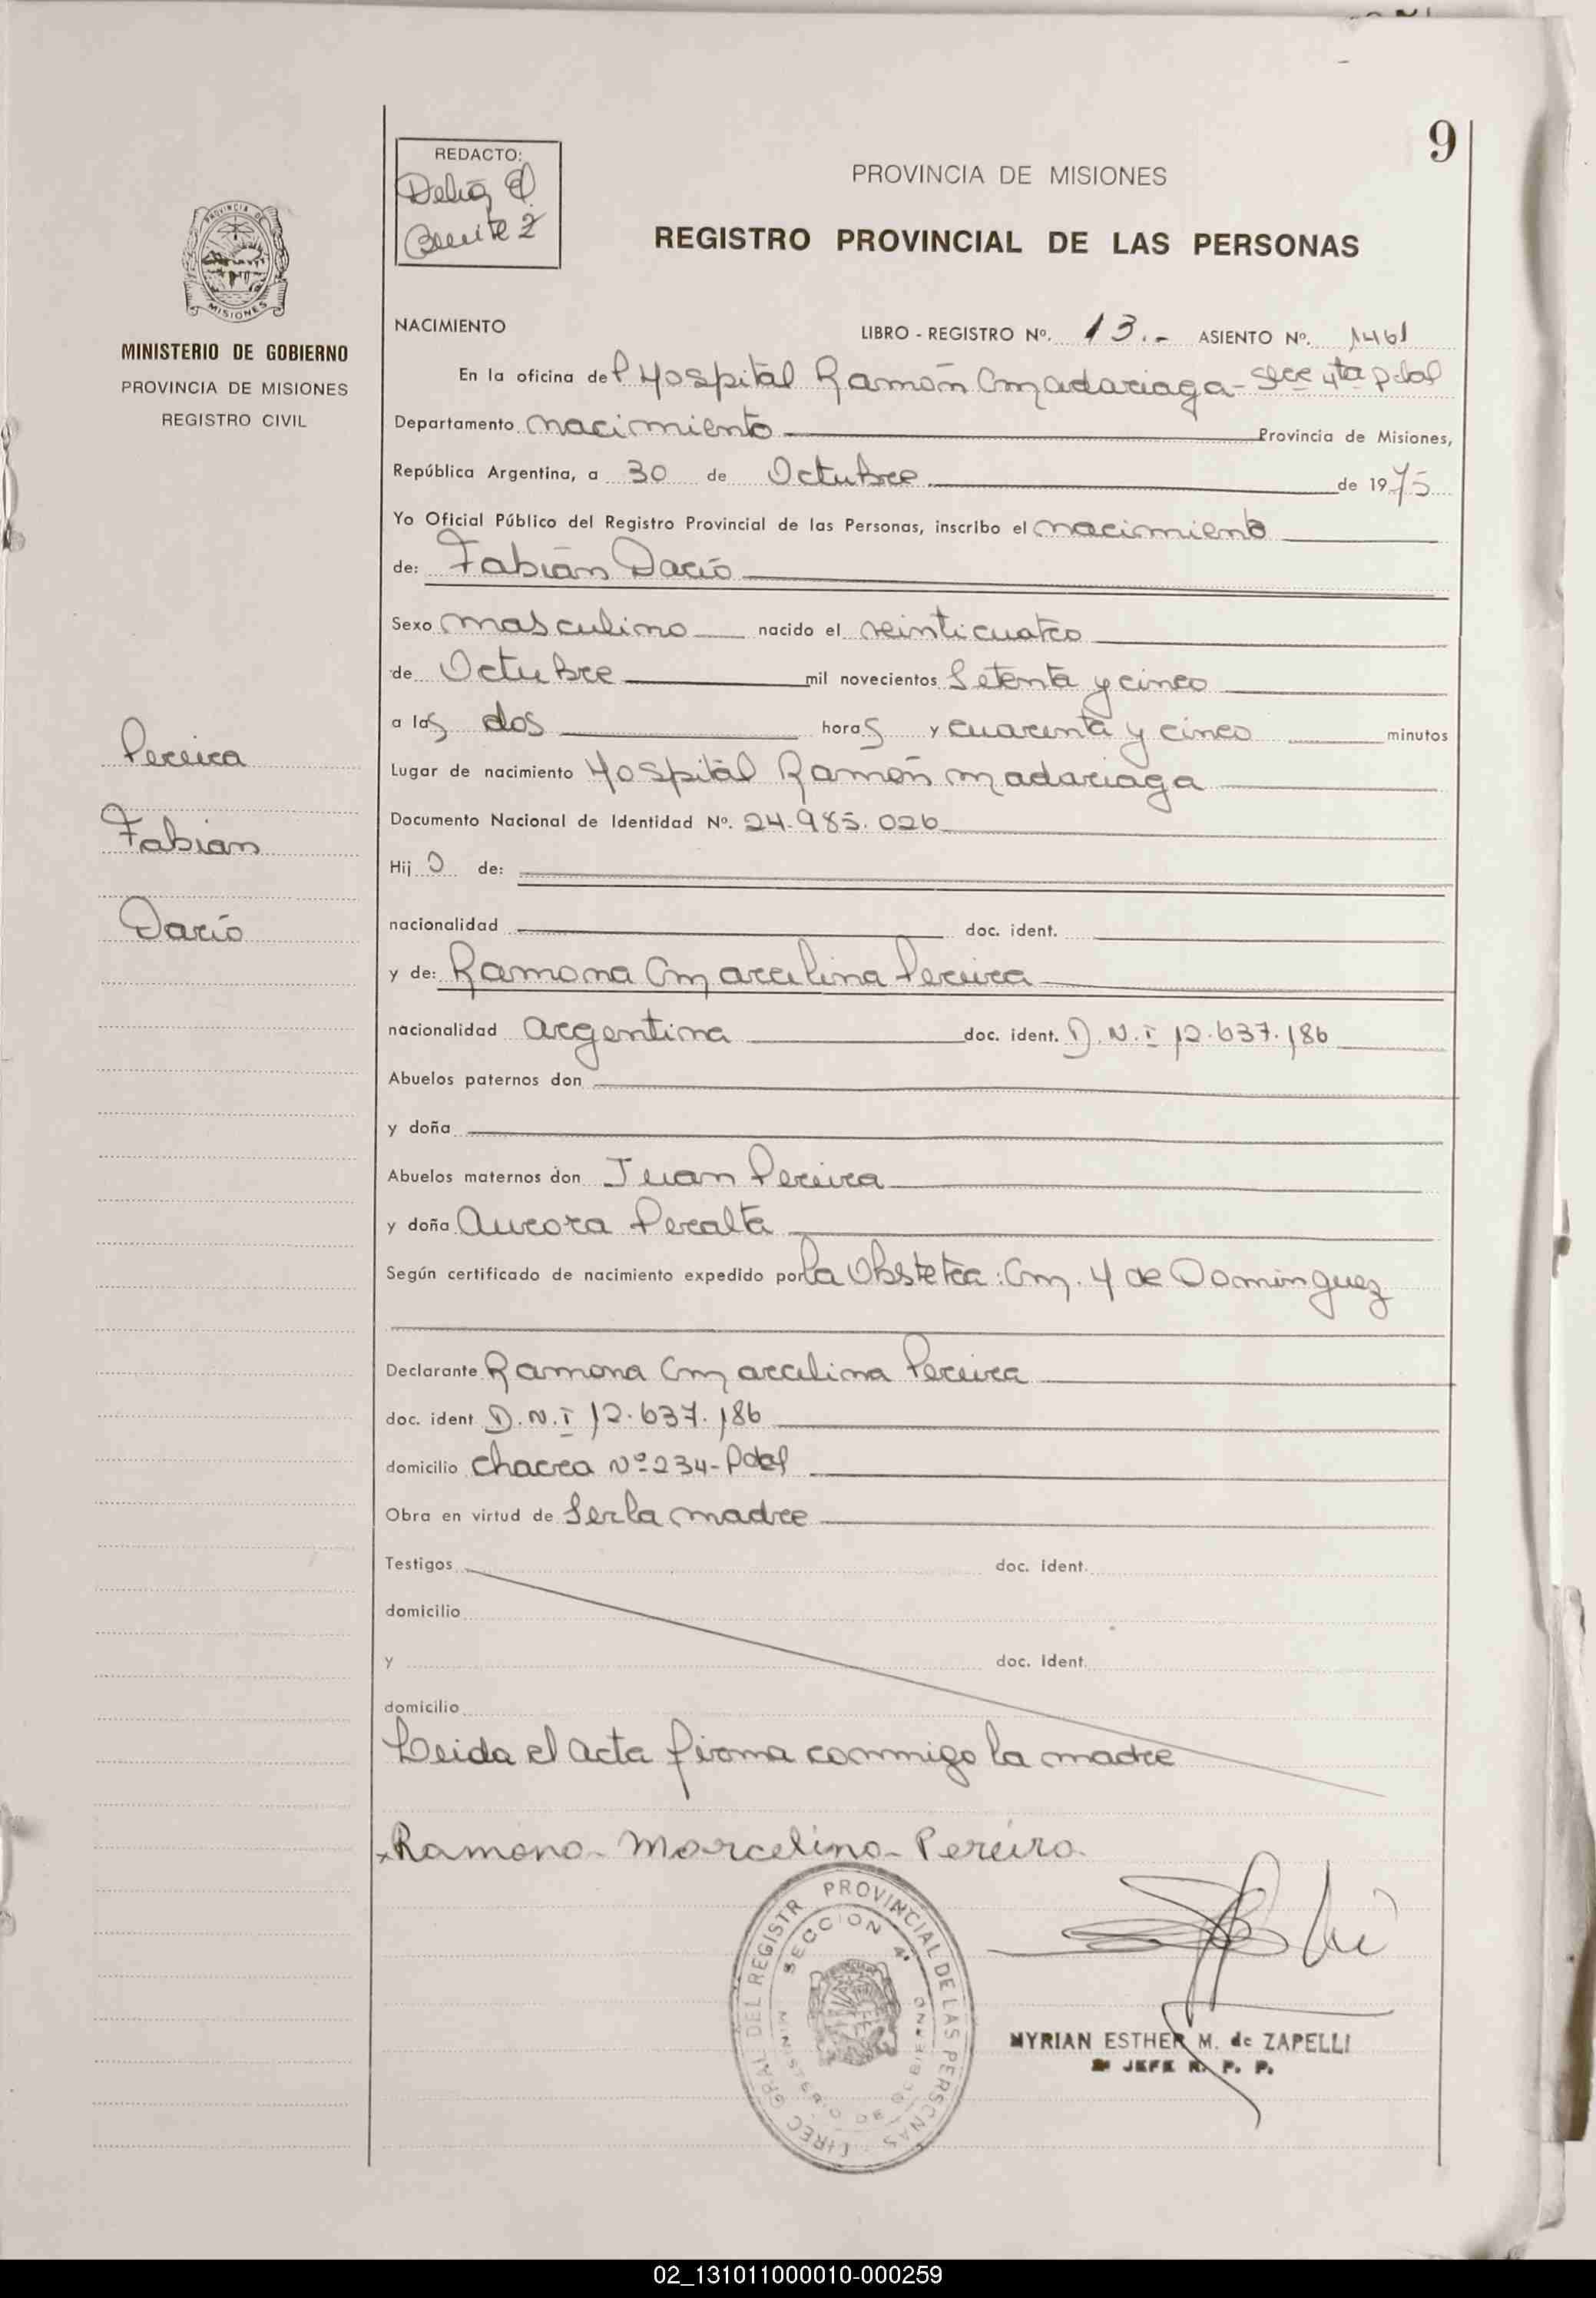 9
REDACTO:
Delia E.
Benitez
PROVINCIA DE MISIONES
REGISTRO PROVINCIAL DE LAS PERSONAS
PROVINCIA DE
MISIONES
MINISTERIO DE GOBIERNO
PROVINCIA DE MISIONES
REGISTRO CIVIL
Pereira
Fabian
Darío
NACIMIENTO LIBRO - REGISTRO Nº. 13.- ASIENTO Nº. 1461
En la oficina del Hospital Ramón Madariaga - Secc 4ta Pdas
Departamento nacimiento Provincia de Misiones,
República Argentina, a 30 de Octubre de 1975
Yo Oficial Público del Registro Provincial de las Personas, inscribo el nacimiento
de: Fabián Darío
Sexo masculino nacido el veinticuatro
de Octubre mil novecientos Setenta y cinco
a las dos horas y cuarenta y cinco minutos
Lugar de nacimiento Hospital Ramón madariaga
Documento Nacional de Identidad Nº. 24.985.026
Hijo de:
nacionalidad doc. ident.
y de: Ramona Marcelina Pereira
nacionalidad argentina doc. ident. D.N.I 12.637.186
Abuelos paternos don
y doña
Abuelos maternos don Juan Pereira
y doña Aurora Peralta
Según certificado de nacimiento expedido por la Obstetra: M. Y de Dominguez
Declarante Ramona Marcelina Pereira
doc. ident D.N.I 12.637.186
domicilio chacra Nº 234- Pdas
Obra en virtud de Ser la madre
Testigos doc. ident.
domicilio
y doc. ident.
domicilio
Leida el acta firma conmigo la madre
x Ramona Marcelina Pereira
DIREC GRAL DEL REGISTR PROVINCIAL DE LAS PERSONAS
SECCION 4ª
MINISTERIO DE GOBIERNO
MYRIAN ESTHER M. de ZAPELLI
JEFE R. P. P.
02_131011000010-000259